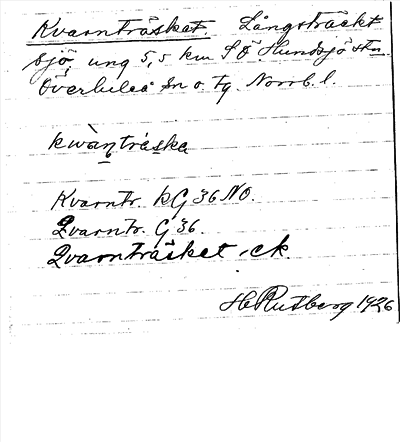 Kvarnträsket. Långsträckt
sjö, ung 5,5 km S Ö Hundsjö stn.
Överluleå sn o. tg. Norrb. l.
kwàṇtrá̀ska
Kvarntr. kG 36 NO.
Qvarntr. G 36.
Qvarnträsket, ek.
H Rutberg 1926